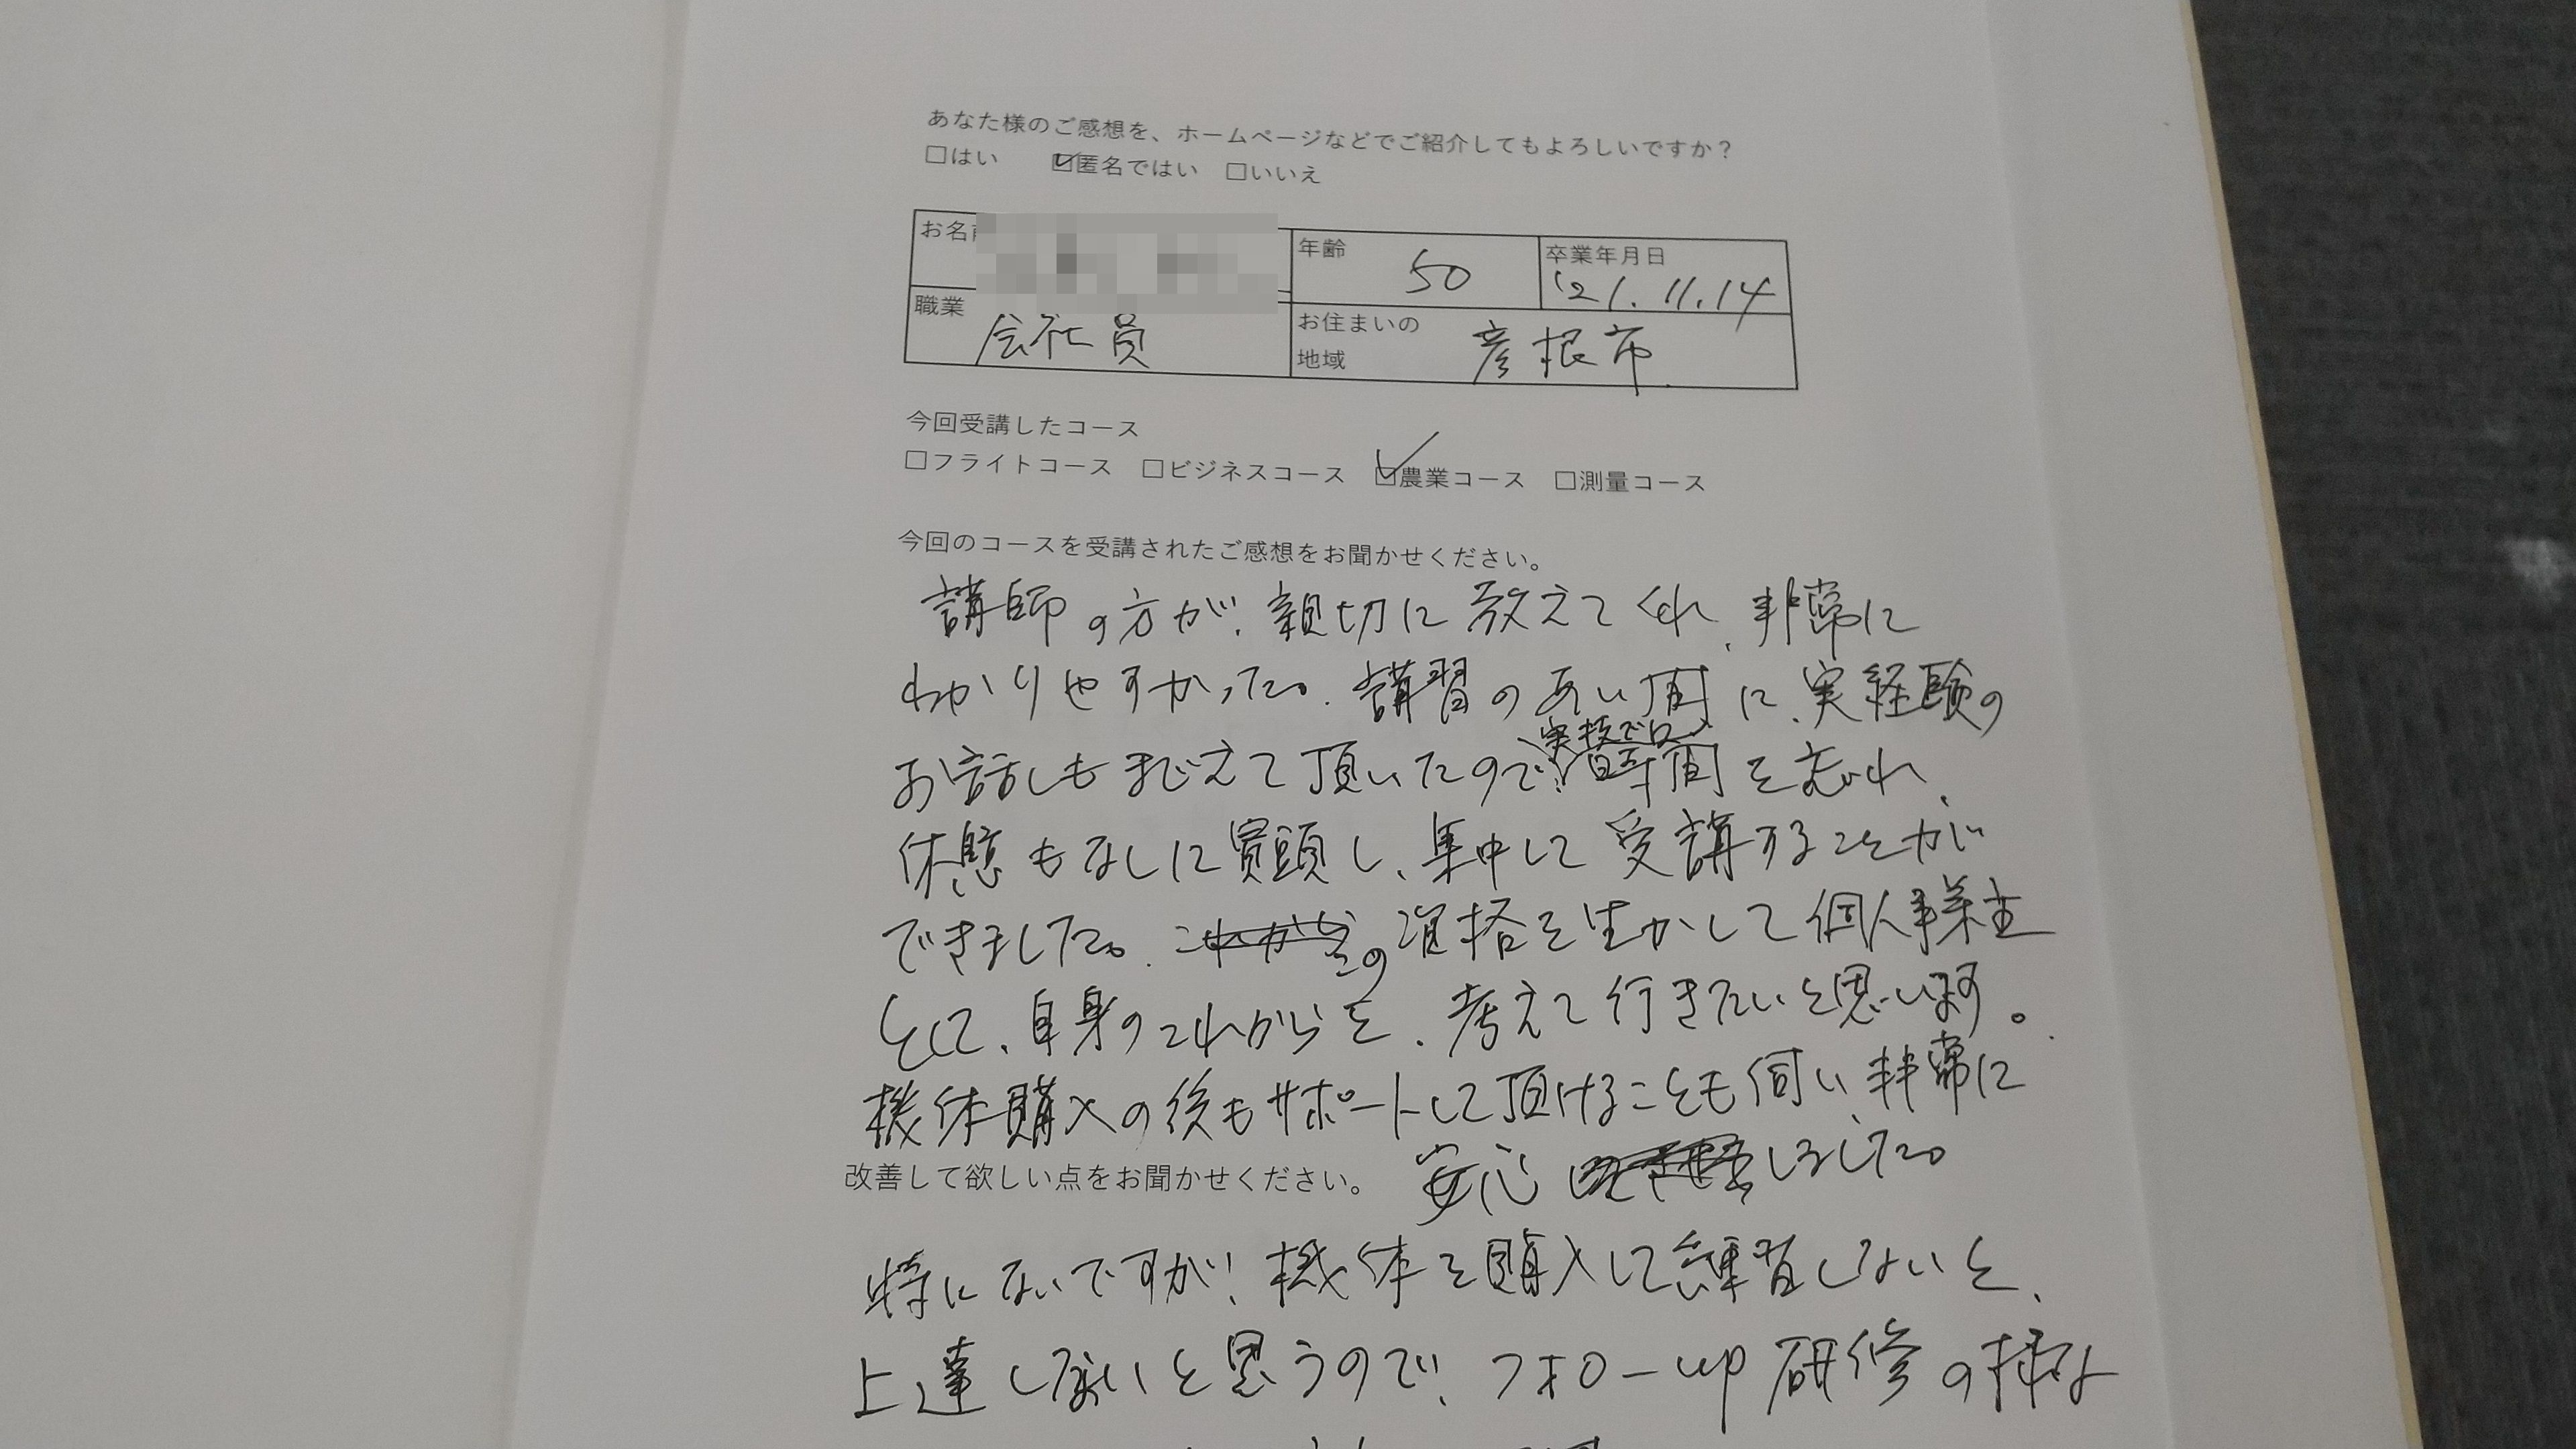 あなた様のご感想を、ホームページなどでご紹介してもよろしいですか？
□はい ☑匿名ではい □いいえ
お名前
年齢 50
卒業年月日 '21.11.14
職業 会社員
お住まいの地域 彦根市
今回受講したコース
□フライトコース □ビジネスコース ☑農業コース □測量コース
今回のコースを受講されたご感想をお聞かせください。
講師の方が、親切に教えてくれ、非常に
わかりやすかった。講習のあい間に、実経験の
お話しもまじえて頂いたので、実技では時間を忘れ、
休憩もなしに没頭し、集中して受講することが
できました。この資格を生かして個人事業主
として、自身のこれからを、考えて行きたいと思います。
機体購入の後もサポートして頂けることも伺い、非常に
安心しました。
改善して欲しい点をお聞かせください。
特にないですが、機体を購入して練習しないと、
上達しないと思うので、フォローup研修の様な